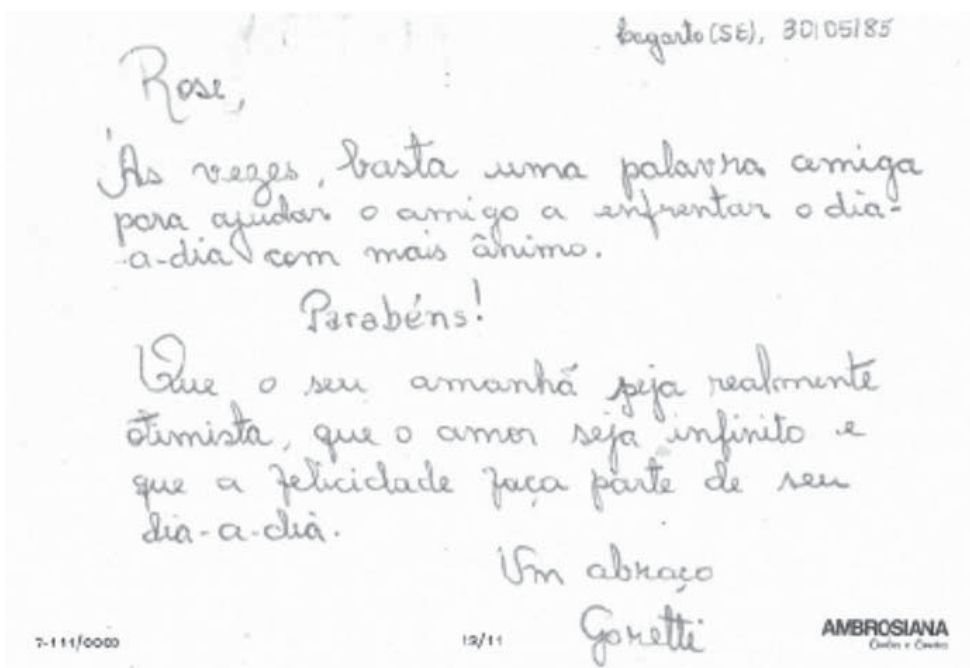 Lagarto (SE), 30/05/85
Rose,
Às vezes, basta uma palavra amiga
para ajudar o amigo a enfrentar o dia-
-a-dia com mais ânimo.
Parabéns!
Que o seu amanhã seja realmente
otimista, que o amor seja infinito e
que a felicidade faça parte de seu
dia-a-dia.
Um abraço
Goretti
7-111/0000
12/11
AMBROSIANA